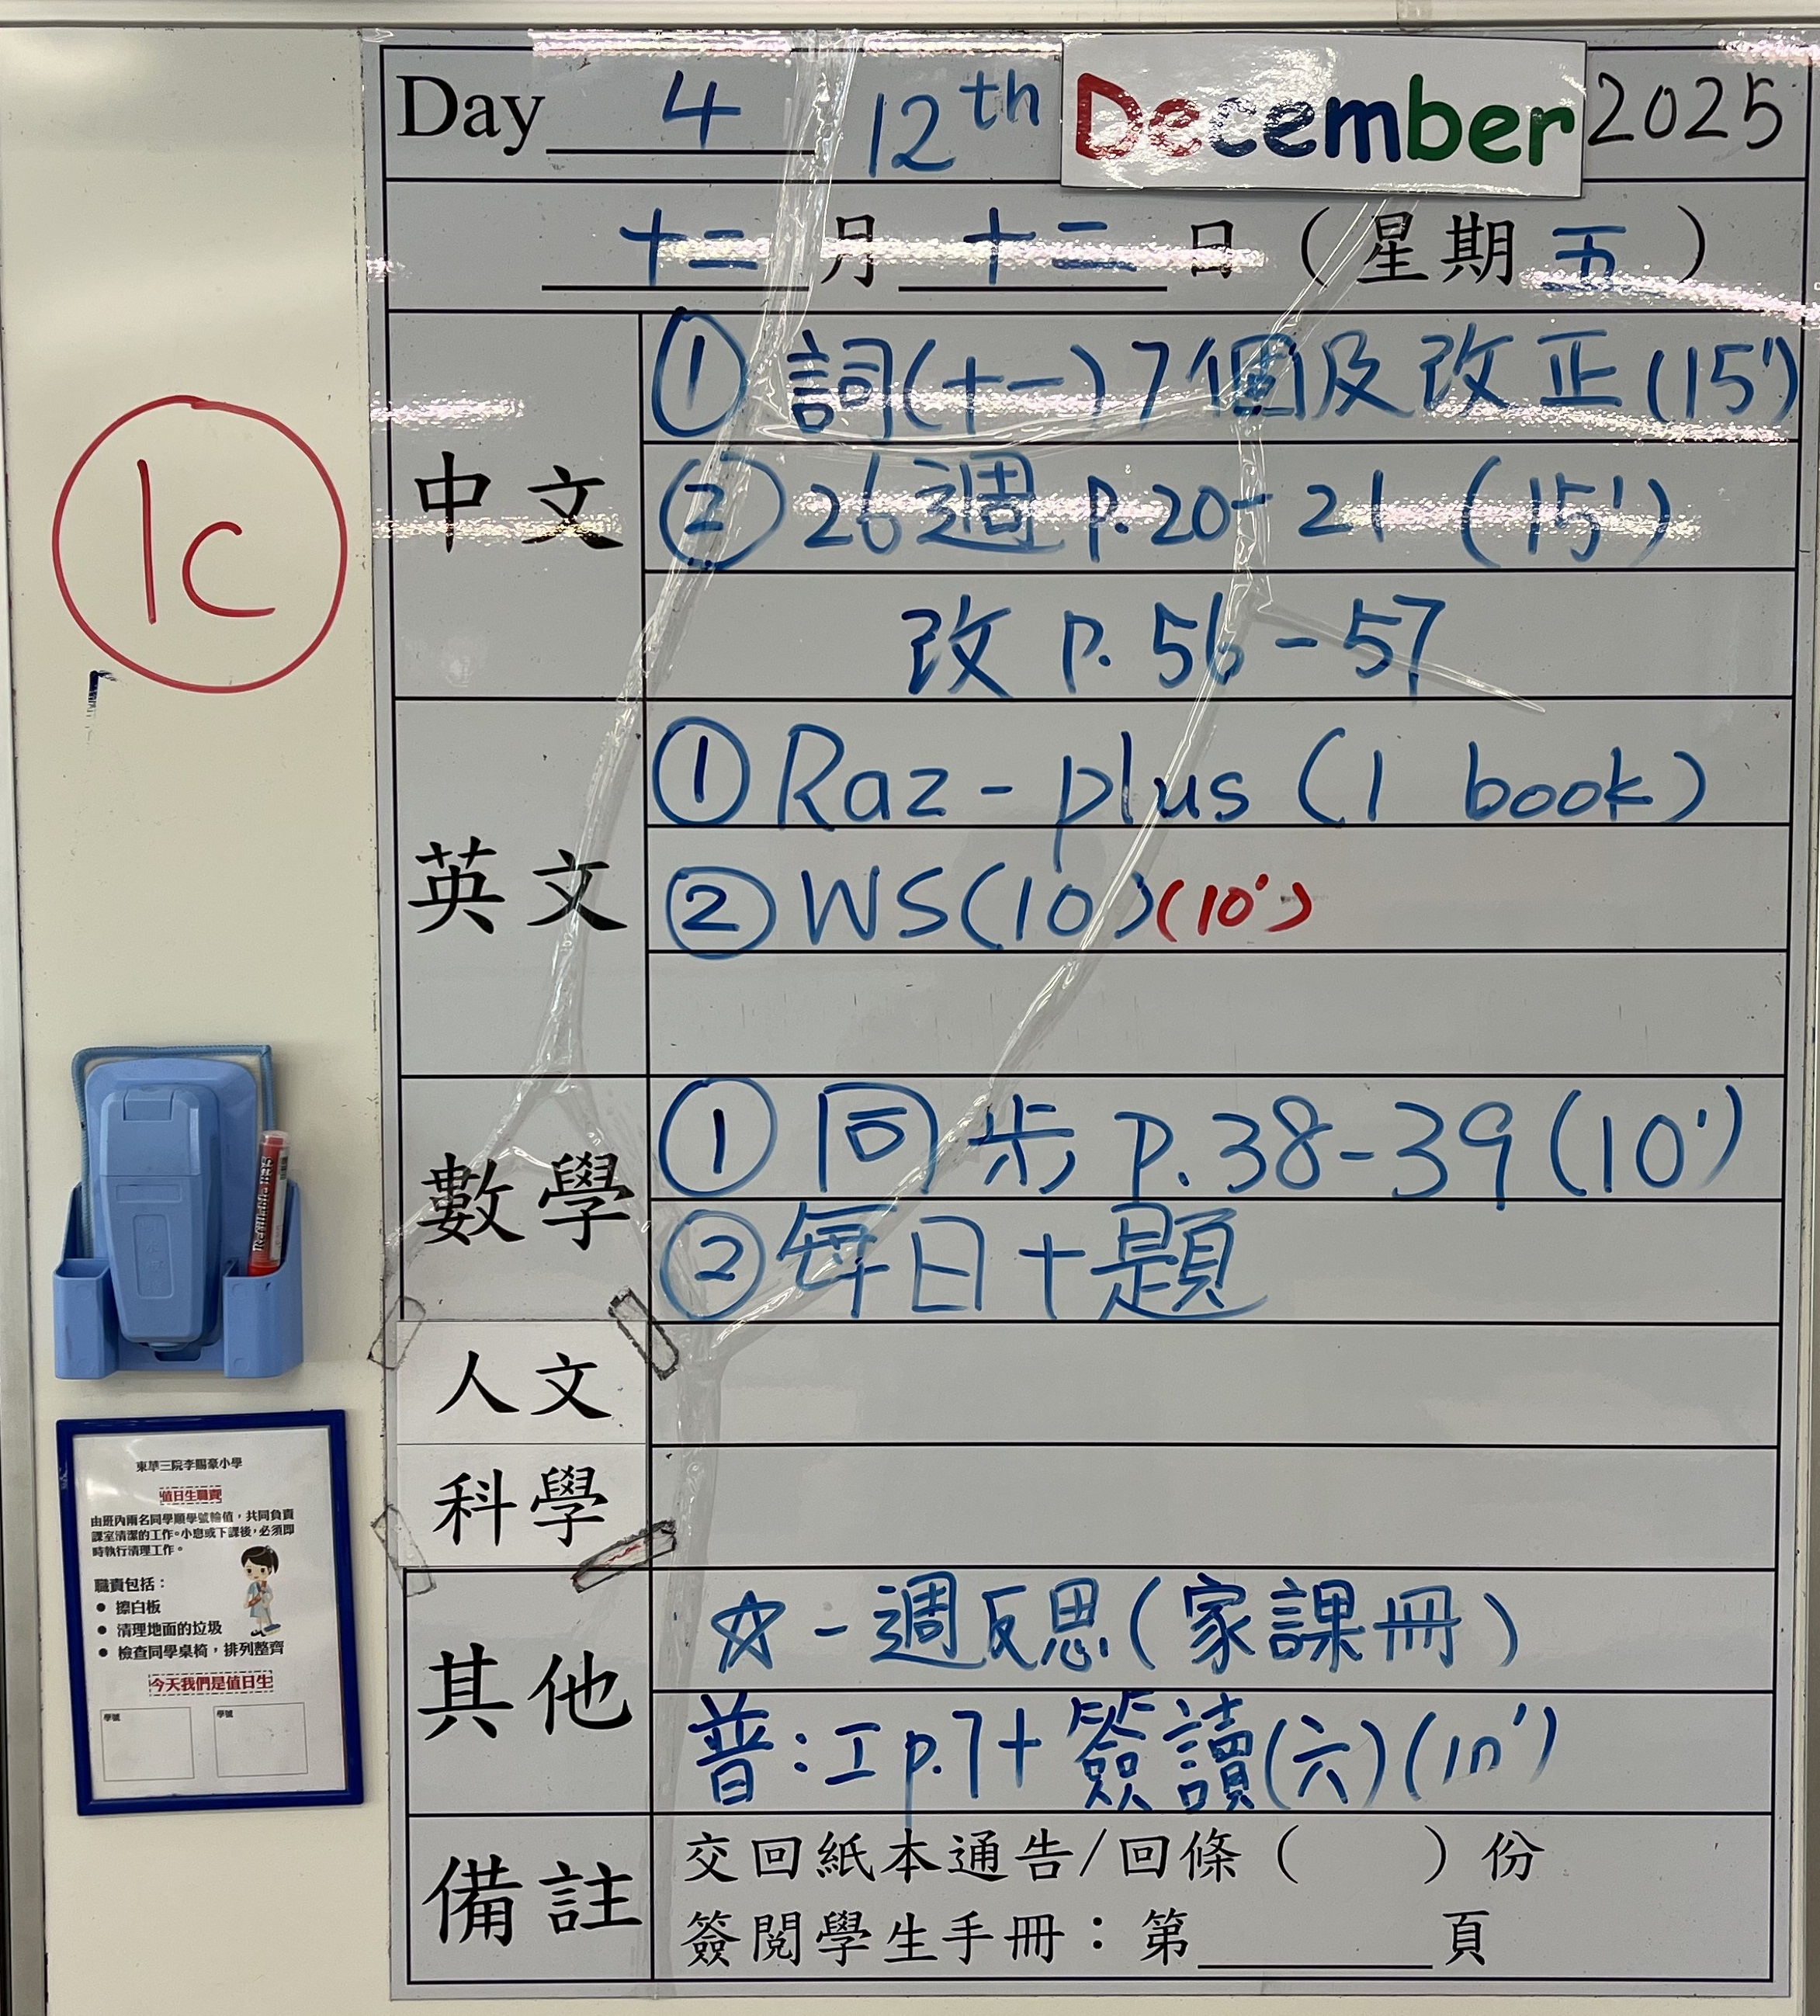 Day 4 12th December 2025
十二月十二日（星期五）
1C
中文
① 詞(十一)7個及改正(15')
② 26週 p.20-21 (15')
改 p.56-57
英文
① Raz-plus (1 book)
② WS(10)(10')
數學
① 同步 p.38-39(10')
② 每日十題
人文
科學
其他
☆ 一週反思(家課冊)
普：工p.7+簽讀(六)(10')
備註
交回紙本通告/回條（　　）份
簽閱學生手冊：第______頁
東華三院李賜豪小學
值日生職責
由班內兩名同學順學號輪值，共同負責
課室清潔的工作。小息或下課後，必須即
時執行清理工作。
職責包括：
● 擦白板
● 清理地面的垃圾
● 檢查同學桌椅，排列整齊
今天我們是值日生
學號 學號